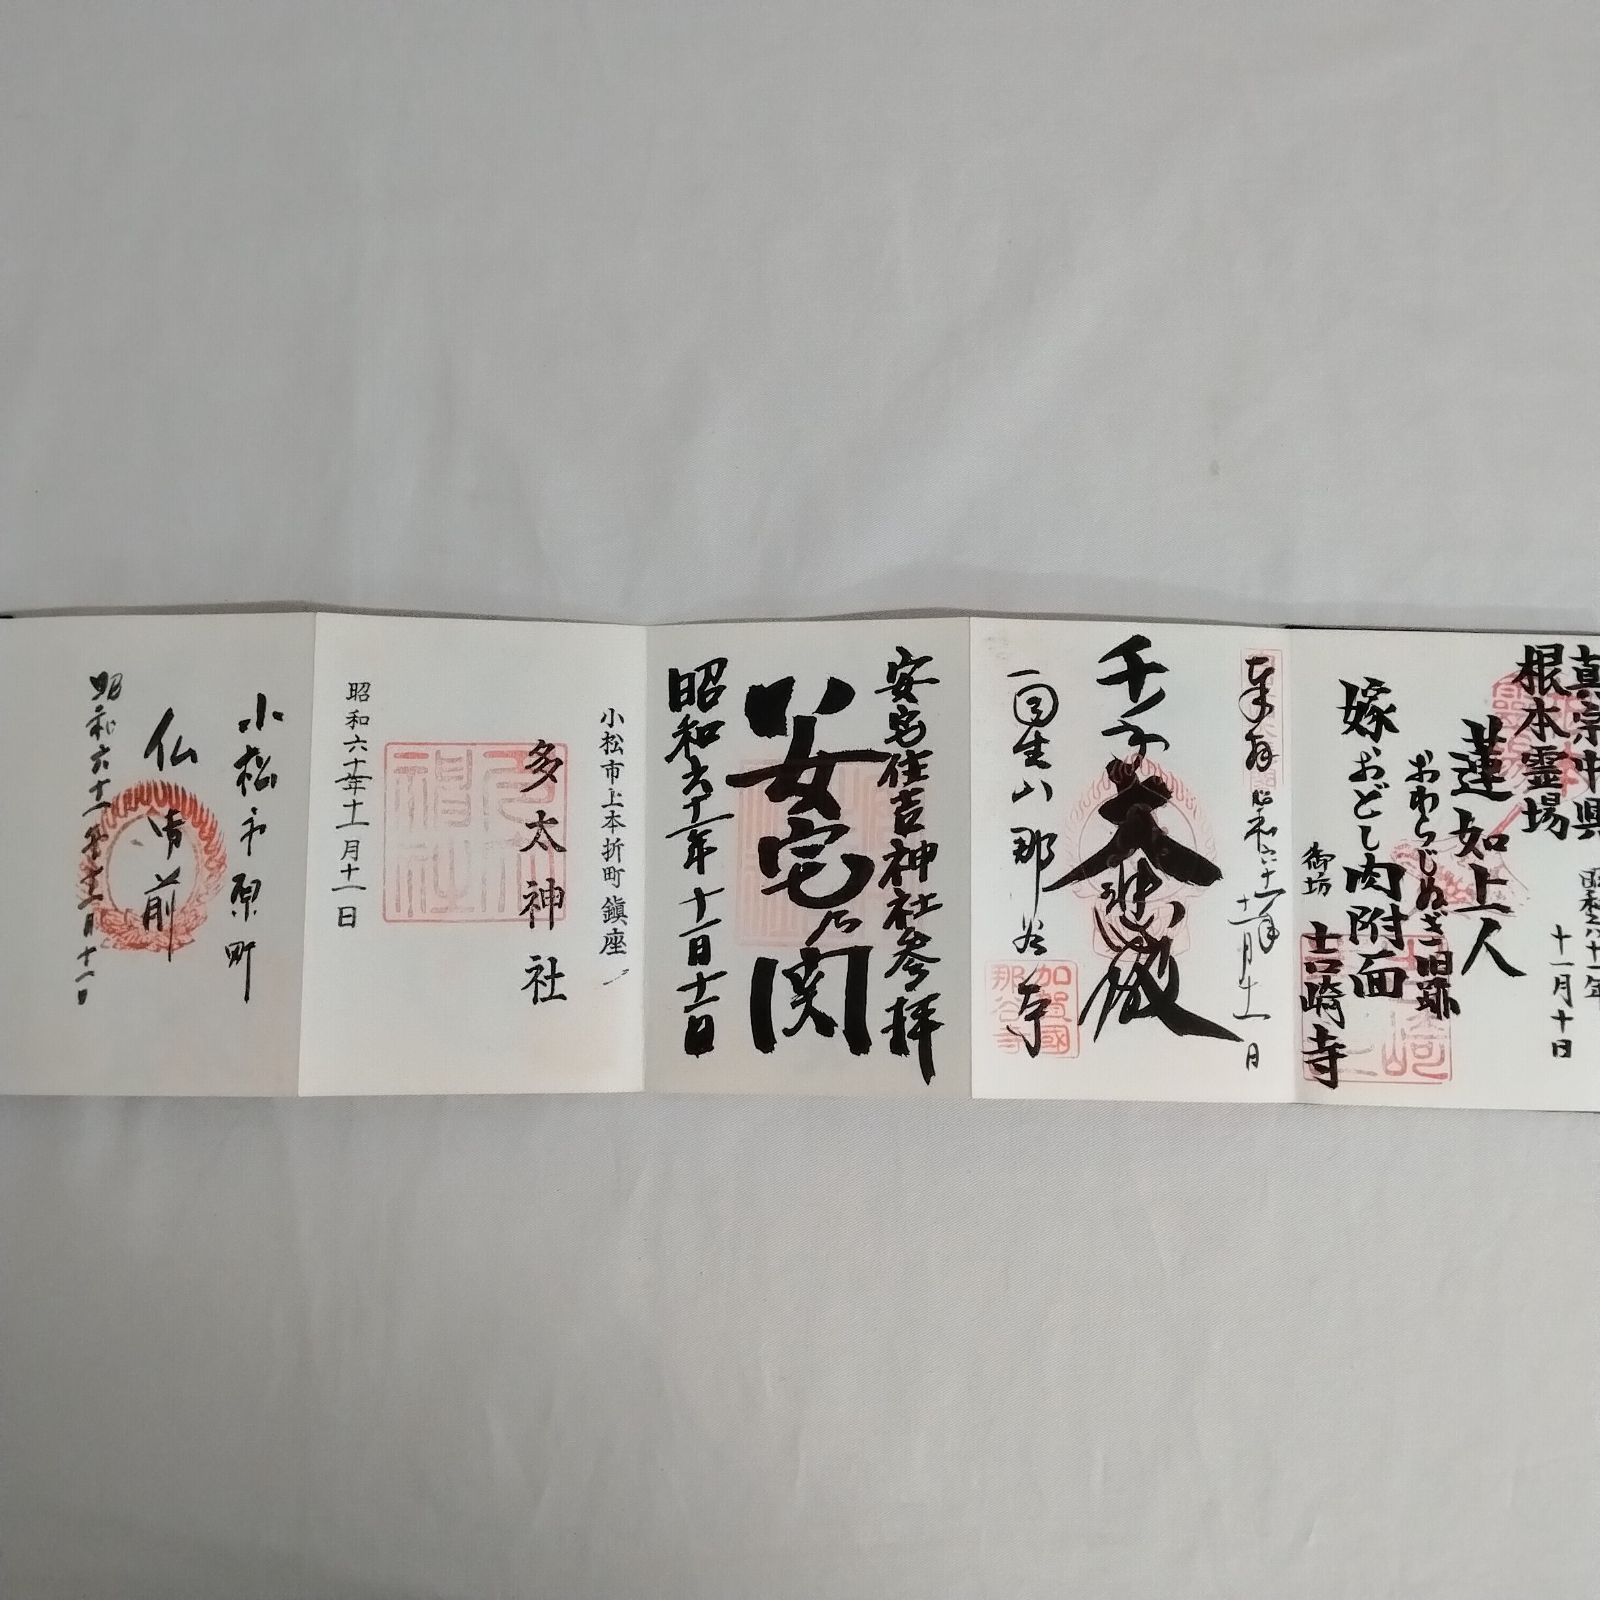 真宗中興
根本霊場
蓮如上人
おわらじぬぎ旧跡
嫁おどし肉附面
御坊
吉崎寺
昭和六十一年
十一月十日
奉拝
昭和六十一年
十一月十一日
千手大悲殿
自生山那谷寺
加賀國
那谷寺
安宅住吉神社参拝
安宅乃関
昭和六十一年十一月十一日
小松市上本折町鎮座
多太神社
昭和六十一年十一月十一日
小松市原町
仏御前
昭和六十一年十一月十一日